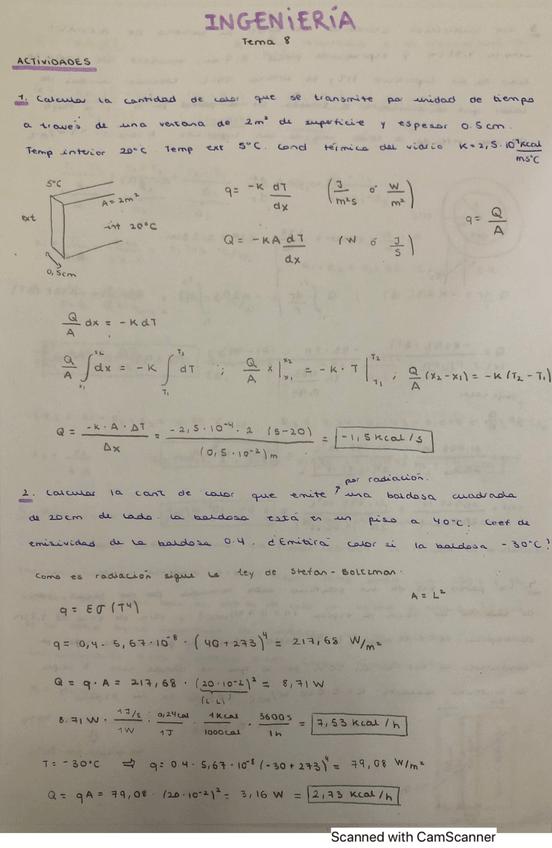 INGENIERÍA
Tema 8
ACTIVIDADES
1. Calcular la cantidad de calor que se transmite por unidad de tiempo
a través de una ventana de 2m² de superficie y espesor 0.5cm.
Temp interior 20°C Temp ext 5°C. Cond térmica del vidrio K=2,5·10⁻⁴ Kcal/ms°C
5°C
A=2m²
ext
int 20°C
0,5cm
q = -K dT/dx (J/m²s ó W/m²)
q = Q/A
Q = -KA dT/dx (W ó J/s)
Q/A dx = -K dT
Q/A ∫x₁^x₂ dx = -K ∫T₁^T₂ dT ; Q/A x|x₁^x₂ = -K · T|T₁^T₂ ; Q/A (x₂-x₁) = -K (T₂-T₁)
Q = -K·A·ΔT/Δx = -2,5·10⁻⁴·2 (5-20)/(0,5·10⁻²)m = -1,5 Kcal/s
por radiación.
2. Calcular la cant de calor que emite una baldosa cuadrada
de 20cm de lado. La baldosa está en un piso a 40°C. Coef de
emisividad de la baldosa 0.4. ¿Emitirá calor si la baldosa -30°C?
Como es radiación sigue la ley de Stefan-Boltzman.
A = L²
q = Eσ(T⁴)
q = 0,4 · 5,67·10⁻⁸ · (40+273)⁴ = 217,68 W/m²
Q = q·A = 217,68 · (20·10⁻²)² = 8,71 W
(L·L)
8.71 W · 1J/s/1W · 0,24cal/1J · 1Kcal/1000cal · 3600s/1h = 7,53 Kcal/h
T = -30°C ⇒ q = 0.4·5,67·10⁻⁸ (-30+273)⁴ = 79,08 W/m²
Q = qA = 79,08 · (20·10⁻²)² = 3,16 W = 2,73 Kcal/h
Scanned with CamScanner